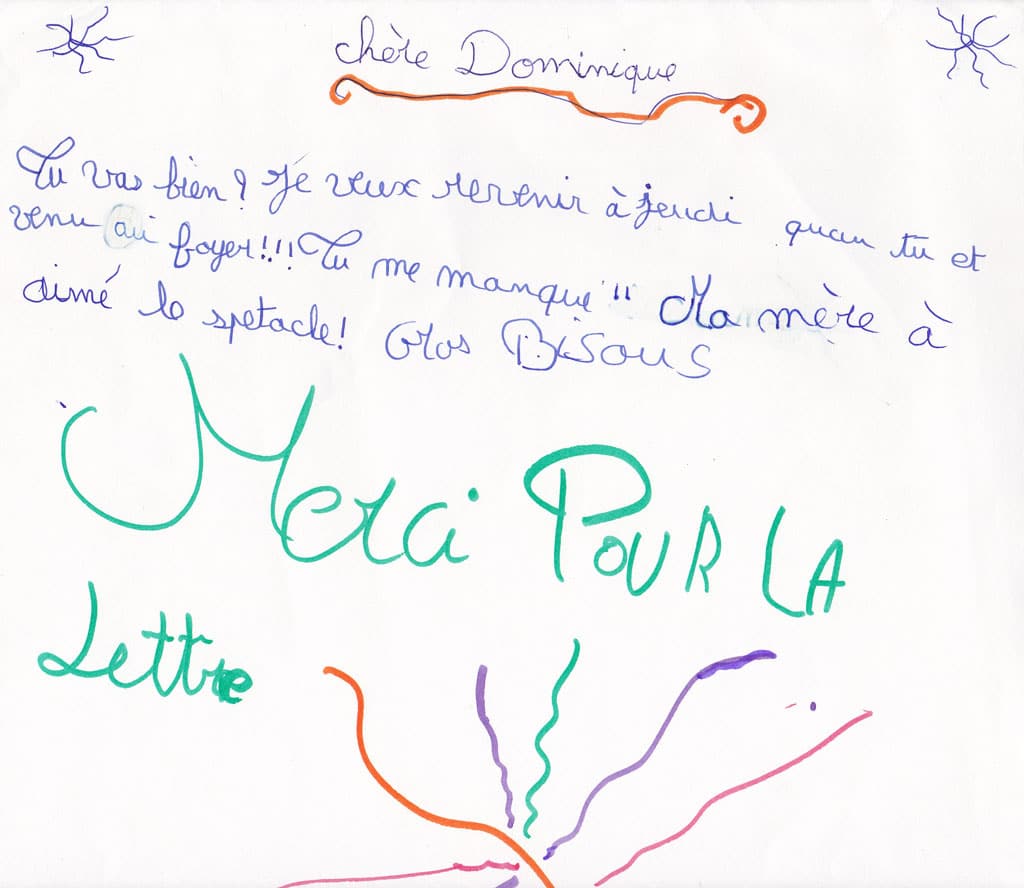 chère Dominique
Tu vas bien ? Je veux revenir à jeudi quan tu et
venu au foyer!!!! Tu me manque !! Ma mère à
aimé le spetacle! Gros Bisous
Merci POUR LA
Lettre